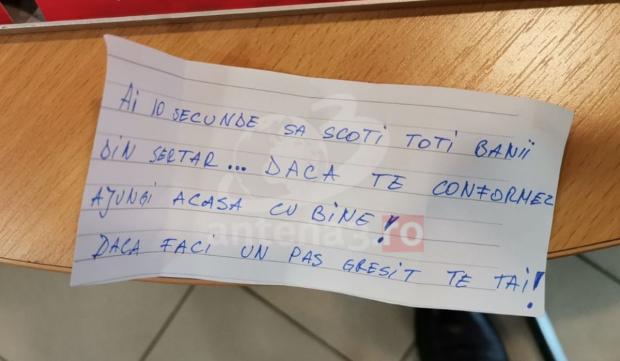 AI 10 SECUNDE SA SCOTI TOTI BANII
DIN SERTAR... DACA TE CONFORMEZ
AJUNGI ACASA CU BINE!
DACA FACI UN PAS GRESIT TE TAI!
antena3.ro